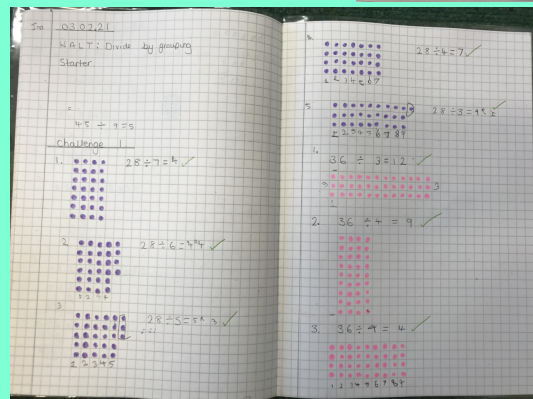 03.02.21
WALT: Divide by grouping
Starter
=
45 ÷ 9 = 5
Challenge 1
1. 28 ÷ 7 = 4
2 28 ÷ 6 = 4r4
3. 28 ÷ 5 = 5r 3
1 2 3 4 5
4. 28 ÷ 4 = 7
1 2 3 4 5 6 7
5 28 ÷ 3 = 9r
1 2 3 4 5 6 7 8 9
1. 36 ÷ 3 = 12
3
2. 36 ÷ 4 = 9
3. 36 ÷ 9 = 4
1 2 3 4 5 6 7 8 9